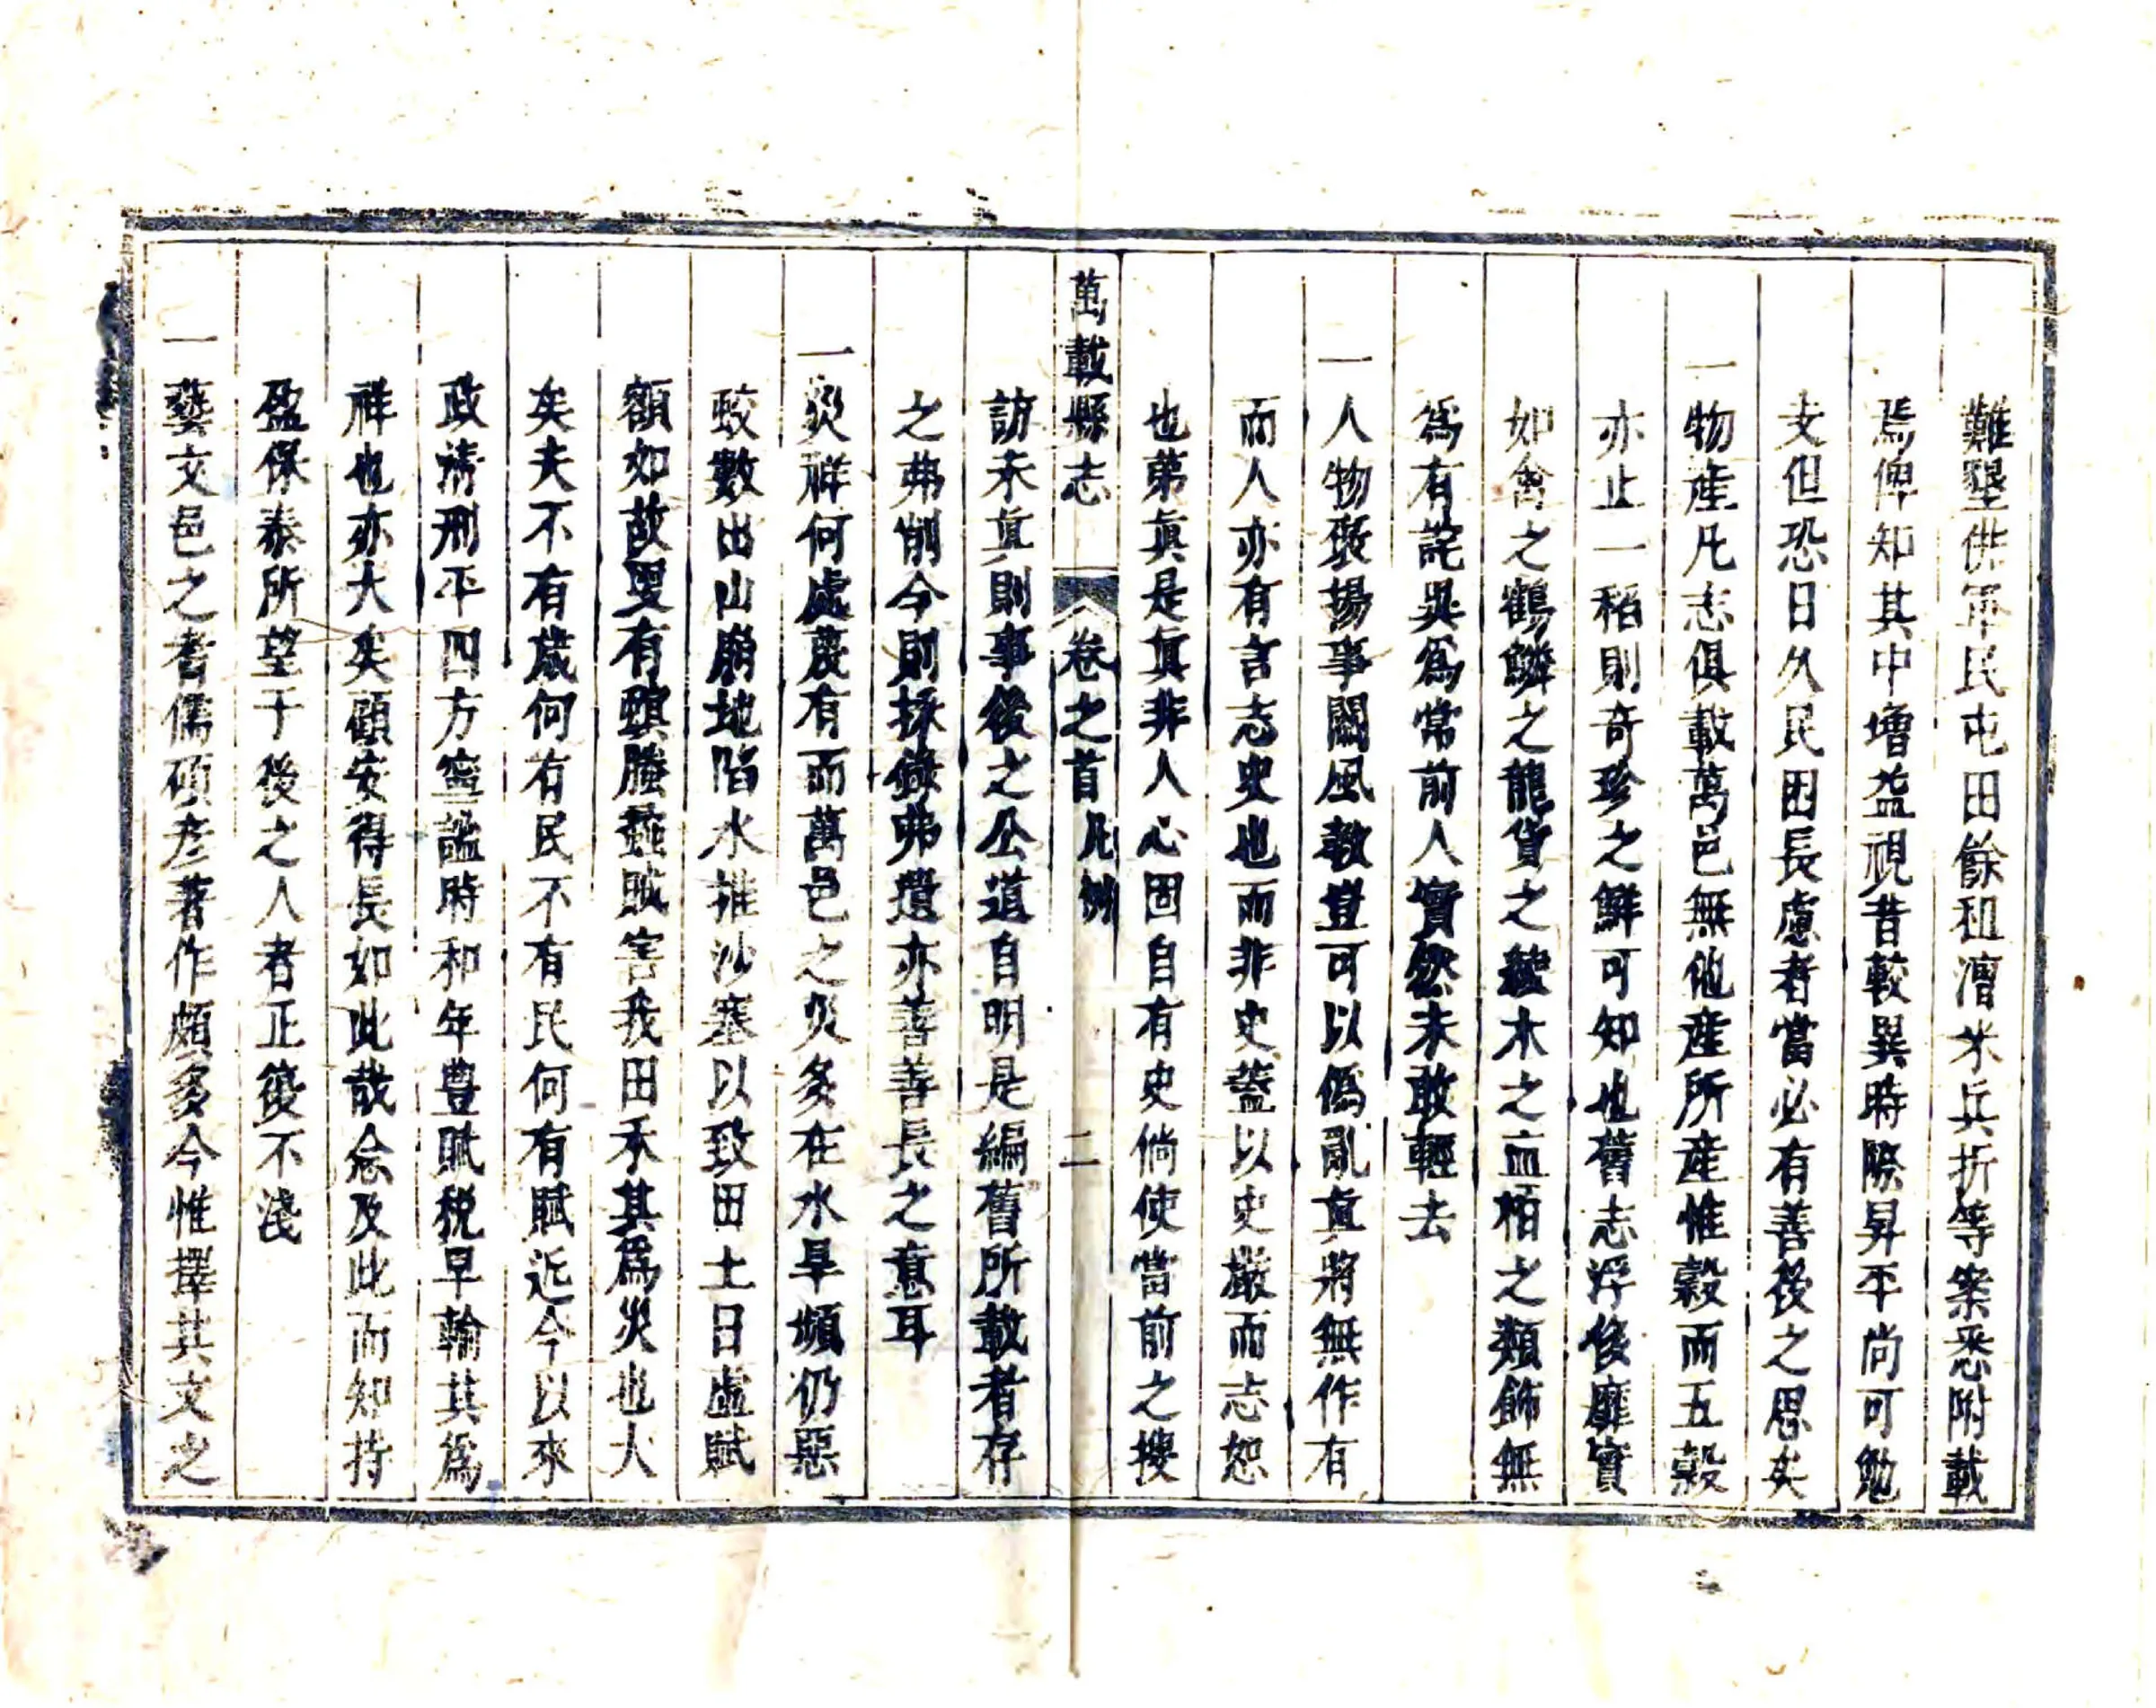 難墾供軍民屯田餘租漕米兵折等案悉附載
焉俾知其中增益視昔較異時際昇平尚可勉
支但恐日久民困長慮者當必有善後之思矣
一物產凡志俱載萬邑無他產所產惟穀而五穀
亦止一稻則奇珍之鮮可知也舊志浮侈靡實
如禽之鶴鱗之龍貨之 木之血柏之類飾無
爲有詫異爲常前人實然未敢輕去
一人物襃揚事關風教豈可以僞亂真將無作有
而人亦有言志史也而非史蓋以史嚴而志恕
也第真是真非人心固自有史倘使當前之搜
訪未真則事後之公道自明是編舊所載者存
之弗削今則採錄弗遺亦善善長之意耳
一災祥何處蔑有而萬邑之災多在水旱頻仍惡
蛟數出山崩地陷水推沙塞以致田土日虛賦
額如故更有螟螣蟊賊害我田禾其爲災也大
矣夫不有歲何有民不有民何有賦近今以來
政淸刑平四方寧謐時和年豊賦稅早輸其爲
祥也亦大矣顧安得長如此哉念及此而知持
盈保泰所望于後之人者正復不淺
一藝文邑之耆儒碩彥著作頗多今惟擇其文之
萬載縣志
卷之首 凡例
二